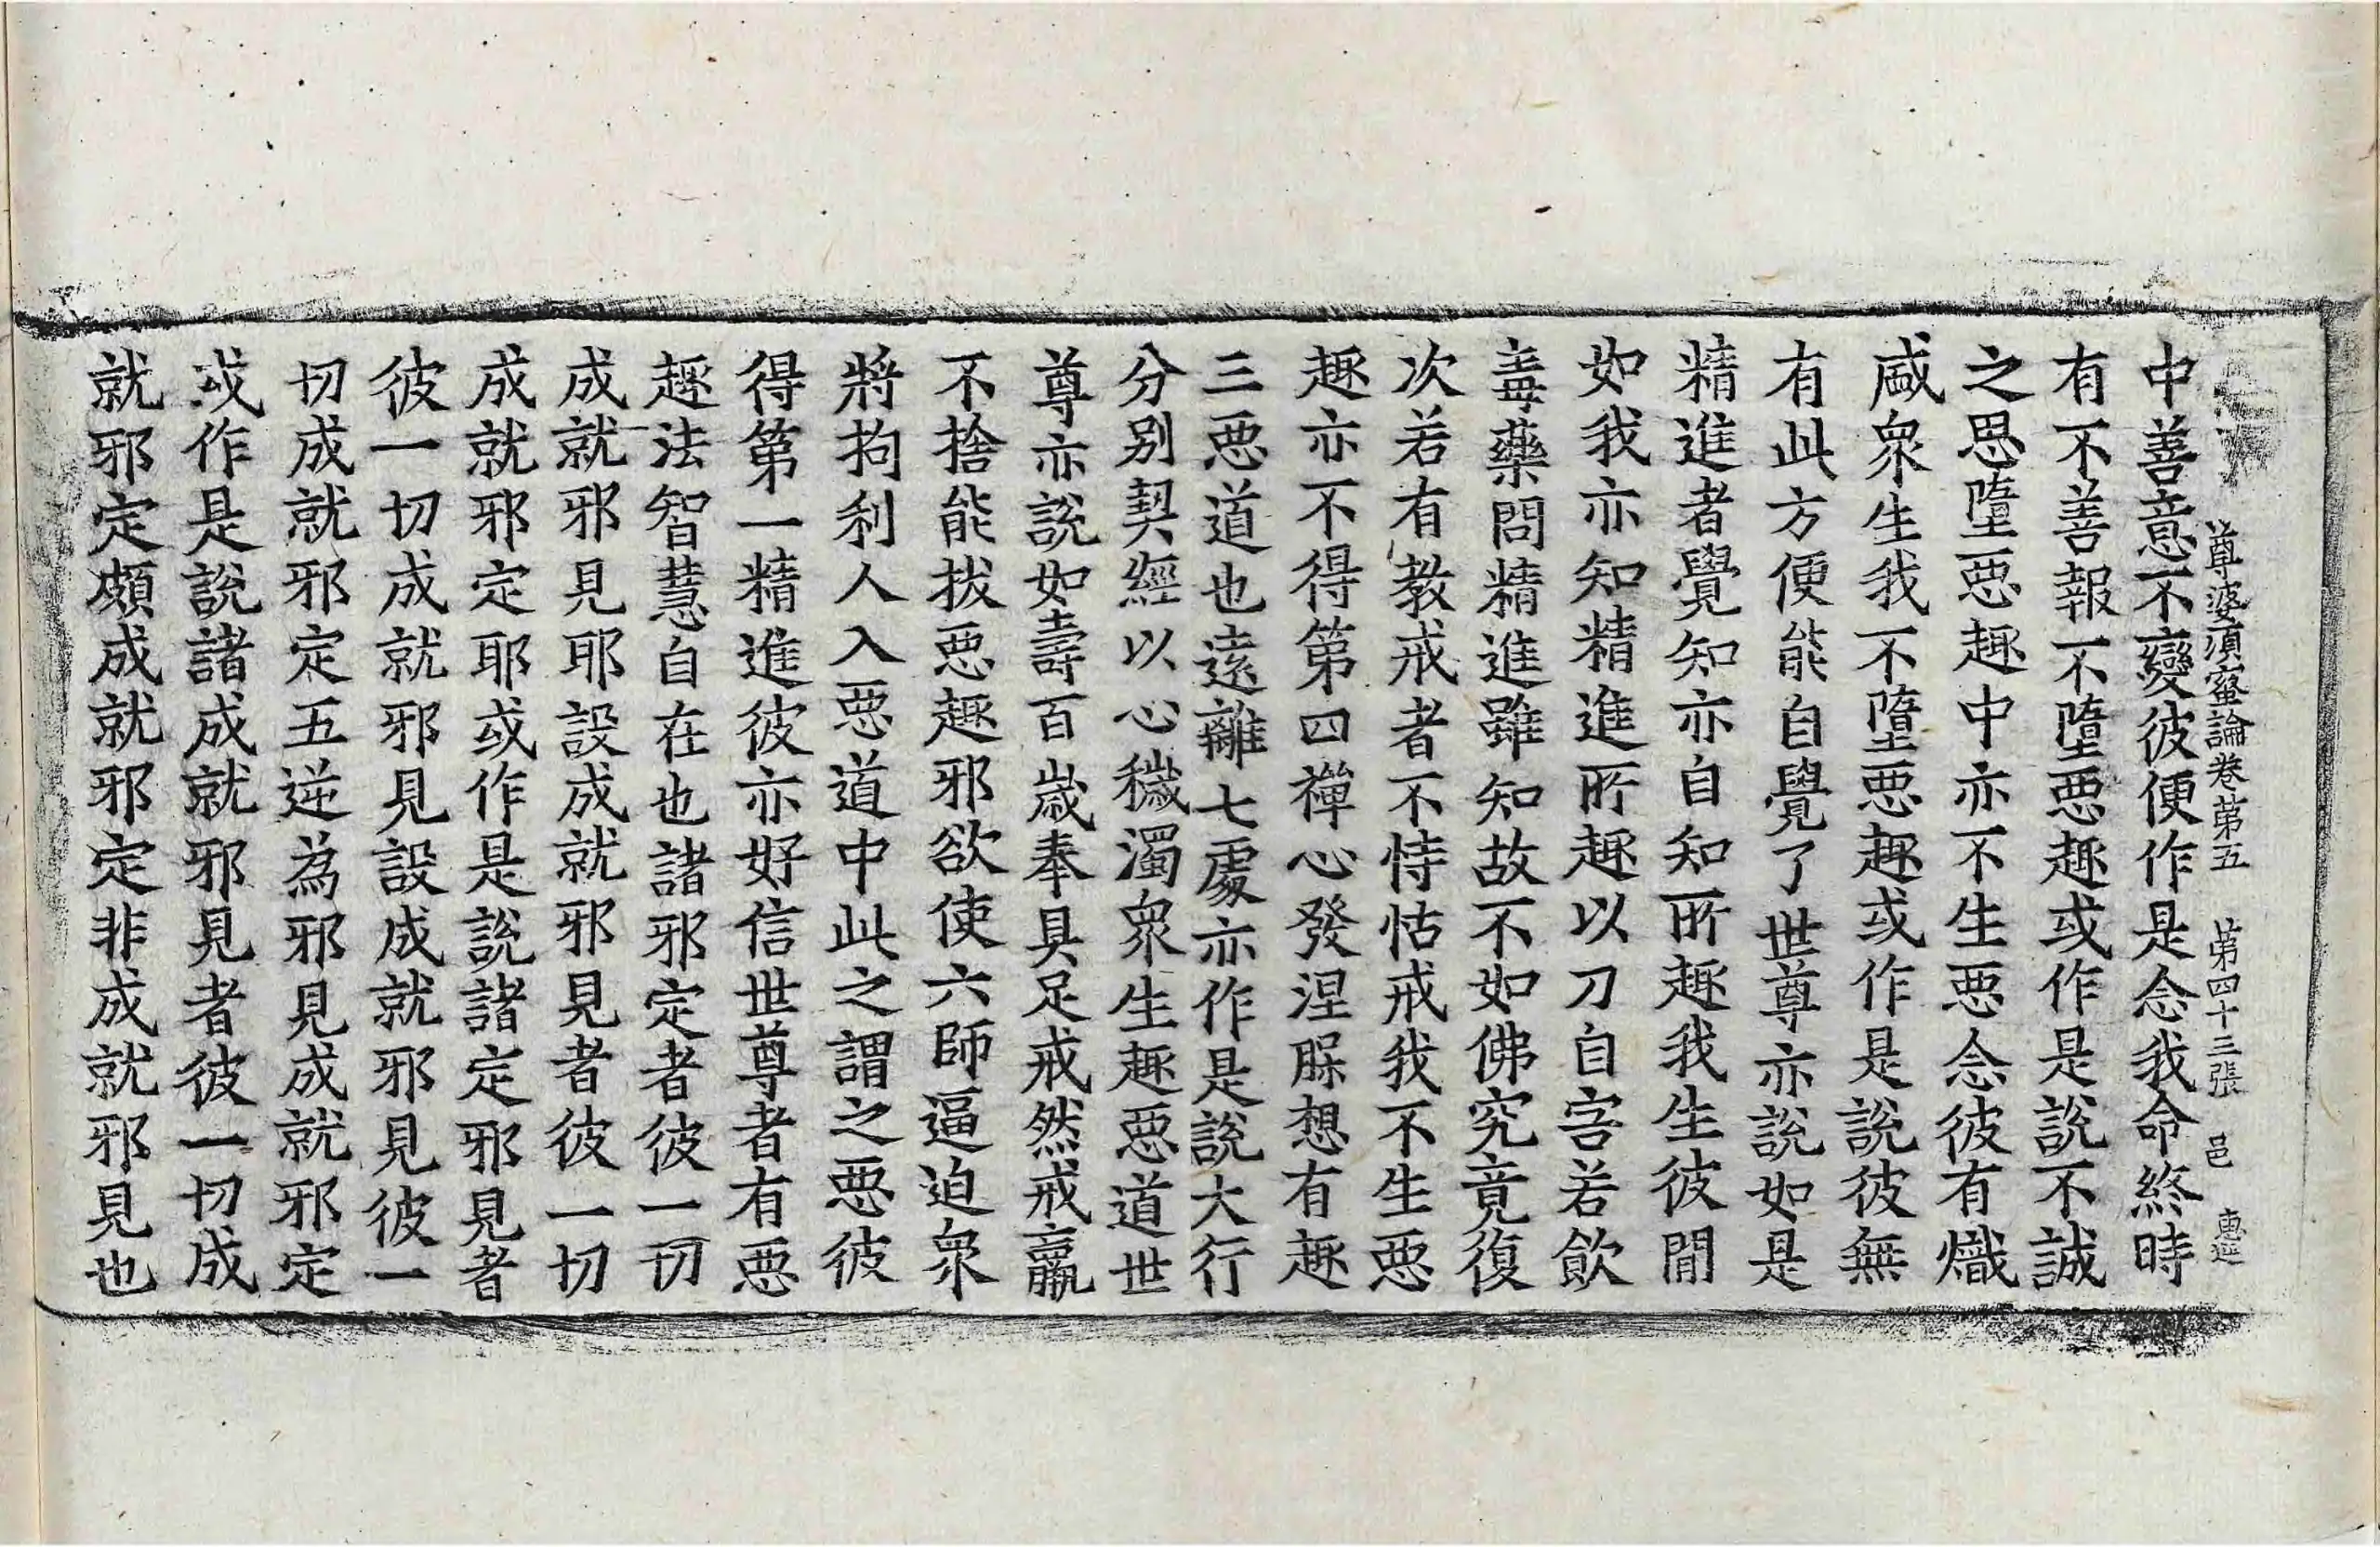 尊婆須蜜論卷第五　第四十三張　邑　惠莚
中善意不變彼便作是念我命終時
有不善報不墮惡趣或作是說不誠
之思墮惡趣中亦不生惡念彼有熾
盛衆生我不墮惡趣或作是說彼無
有此方便能自覺了世尊亦說如是
精進者覺知亦自知所趣我生彼間
如我亦知精進所趣以刀自害若飲
毒藥問精進雖知故不如佛究竟復
次若有教戒者不恃怙戒我不生惡
趣亦不得第四禪心發涅槃想有趣
三惡道也遠離七處亦作是說大行
分別契經以心穢濁衆生趣惡道世
尊亦說如壽百歲奉具足戒然戒羸
不捨能拔惡趣邪欲使六師逼迫衆
將拘利人入惡道中此之謂之惡彼
得第一精進彼亦好信世尊者有惡
趣法智慧自在也諸邪定者彼一切
成就邪見耶設成就邪見者彼一切
成就邪定耶或作是說諸定邪見者
彼一切成就邪見設成就邪見彼一
切成就邪定五逆為邪見成就邪定
或作是說諸成就邪見者彼一切成
就邪定頗成就邪定非成就邪見也